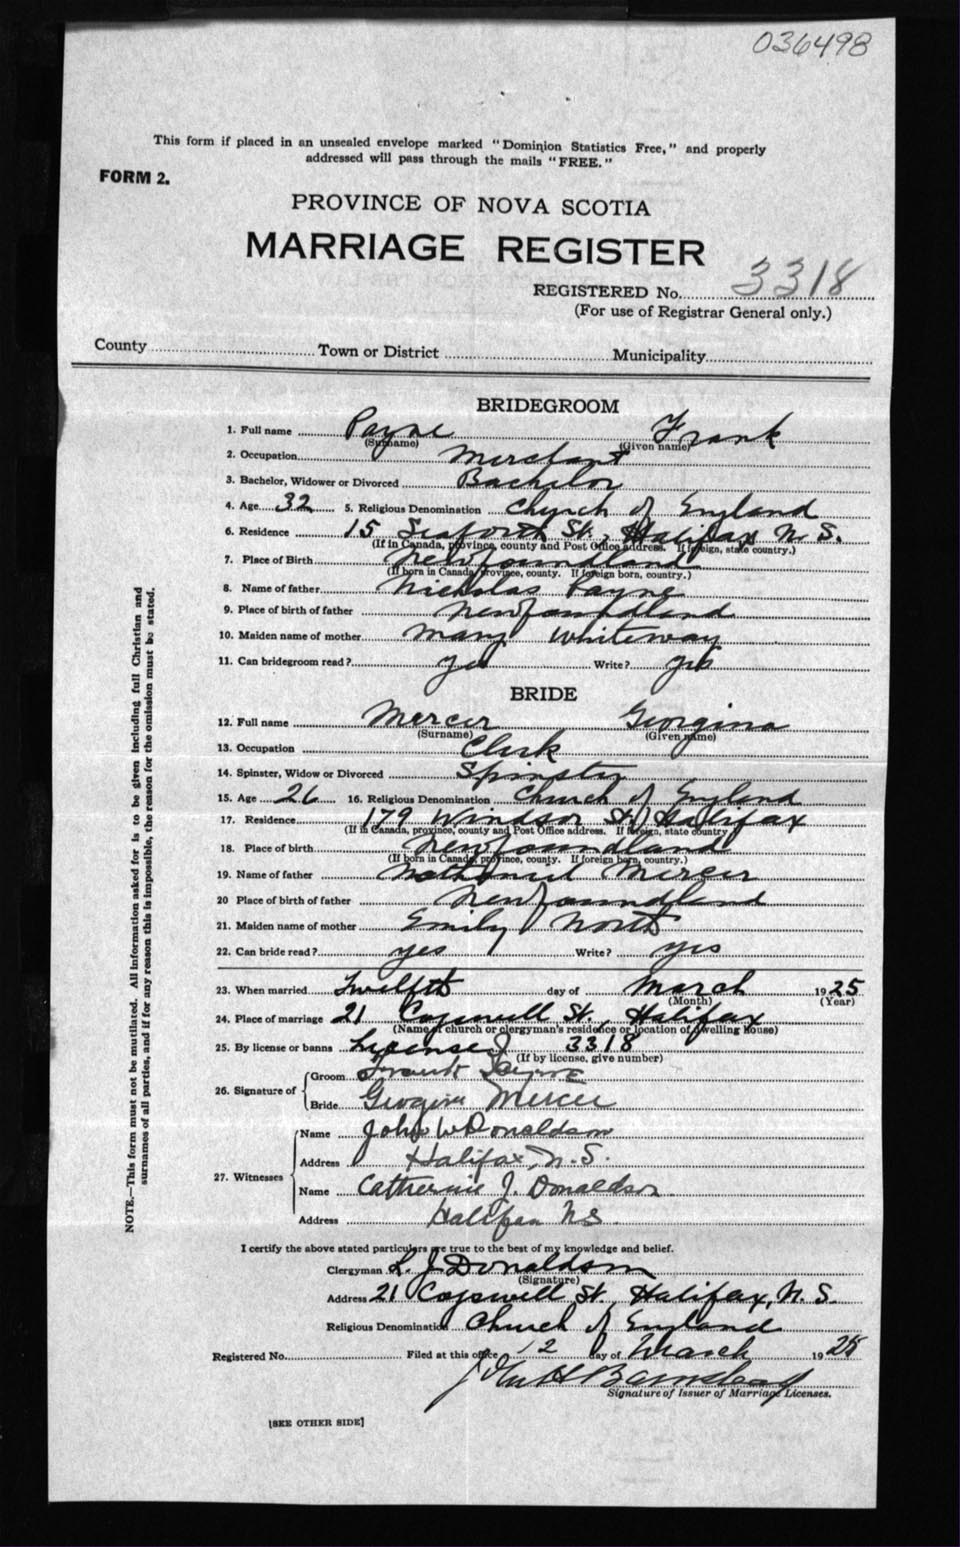 036498
This form if placed in an unsealed envelope marked "Dominion Statistics Free," and properly
addressed will pass through the mails "FREE."
FORM 2.
PROVINCE OF NOVA SCOTIA
MARRIAGE REGISTER
REGISTERED No. 3318
(For use of Registrar General only.)
County Town or District Municipality
BRIDEGROOM
1. Full name Payne Frank
(Surname) (Given name)
2. Occupation Merchant
3. Bachelor, Widower or Divorced Bachelor
4. Age 32 5. Religious Denomination Church of England
6. Residence 15 Seaforth St., Halifax N. S.
(If in Canada, province, county and Post Office address. If foreign, state country.)
7. Place of Birth Newfoundland
(If born in Canada, province, county. If foreign born, country.)
8. Name of father Nicholas Payne
9. Place of birth of father Newfoundland
10. Maiden name of mother Mary Whiteway
11. Can bridegroom read? yes Write? yes
BRIDE
12. Full name Mercer Georgina
(Surname) (Given name)
13. Occupation Clerk
14. Spinster, Widow or Divorced Spinster
15. Age 26 16. Religious Denomination Church of England
17. Residence 179 Windsor St, Halifax
(If in Canada, province, county and Post Office address. If foreign, state country
18. Place of birth Newfoundland
(If born in Canada, province, county. If foreign born, country.)
19. Name of father Nathaniel Mercer
20 Place of birth of father Newfoundland
21. Maiden name of mother Emily North
22. Can bride read? yes Write? yes
23. When married Twelfth day of March 1925
(Month) (Year)
24. Place of marriage 21 Cogswell St., Halifax
(Name of church or clergyman's residence or location of dwelling house)
25. By license or banns License 3318
(If by license, give number)
26. Signature of Groom Frank Payne
Bride Georgina Mercer
27. Witnesses Name John W Donaldson
Address Halifax, N. S.
Name Catherine J. Donaldson
Address Halifax NS.
I certify the above stated particulars are true to the best of my knowledge and belief.
Clergyman L. J. Donaldson
(Signature)
Address 21 Cogswell St. Halifax, N. S.
Religious Denomination Church of England
Registered No. Filed at this office 12 day of March 1925
John H Barnstead
Signature of Issuer of Marriage Licenses.
[SEE OTHER SIDE]
NOTE.—This form must not be mutilated. All information asked for is to be given including full Christian and
surnames of all parties, and if for any reason this is impossible, the reason for the omission must be stated.